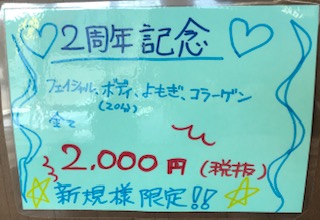 2周年記念
フェイシャル、ボディ、よもぎ、コラーゲン
(20分)
全て
2,000円(税抜)
新規様限定!!